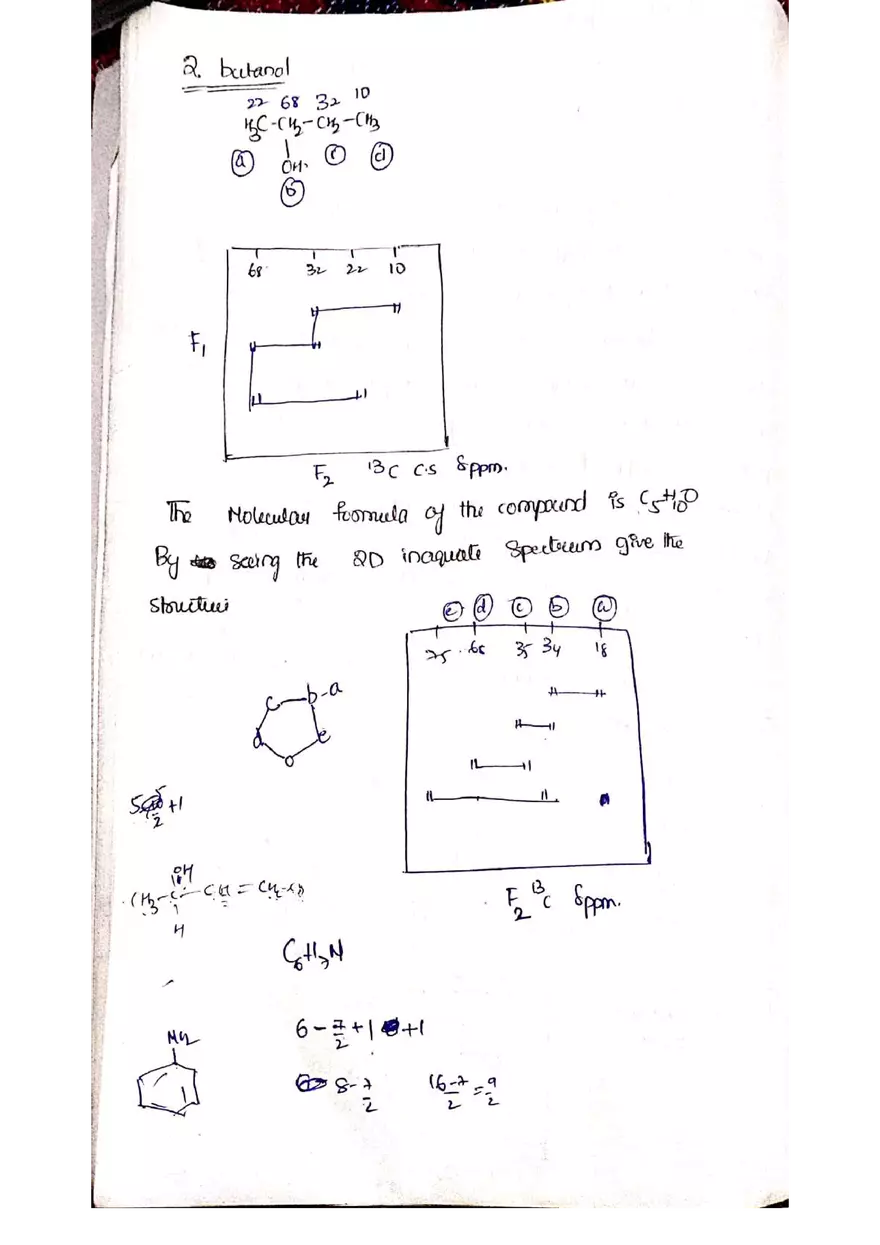 2. butanol
22 68 32 10
H3C-CH2-CH2-CH3
OH
a c d
b
68 32 22 10
F1
F2 13C C.S δ ppm.
The Molecular formula of the compound is C5H10O
By seeing the 2D inaquate Spectrum give the
Structure
e d c b a
75 68 35 34 18
c b-a
d e
o
+1
2
OH
CH3-C-CH=CH2
H
F2 13C δ ppm.
C6H7N
NH2
6-7/2+1+1
8-7/2 16-7/2=9/2